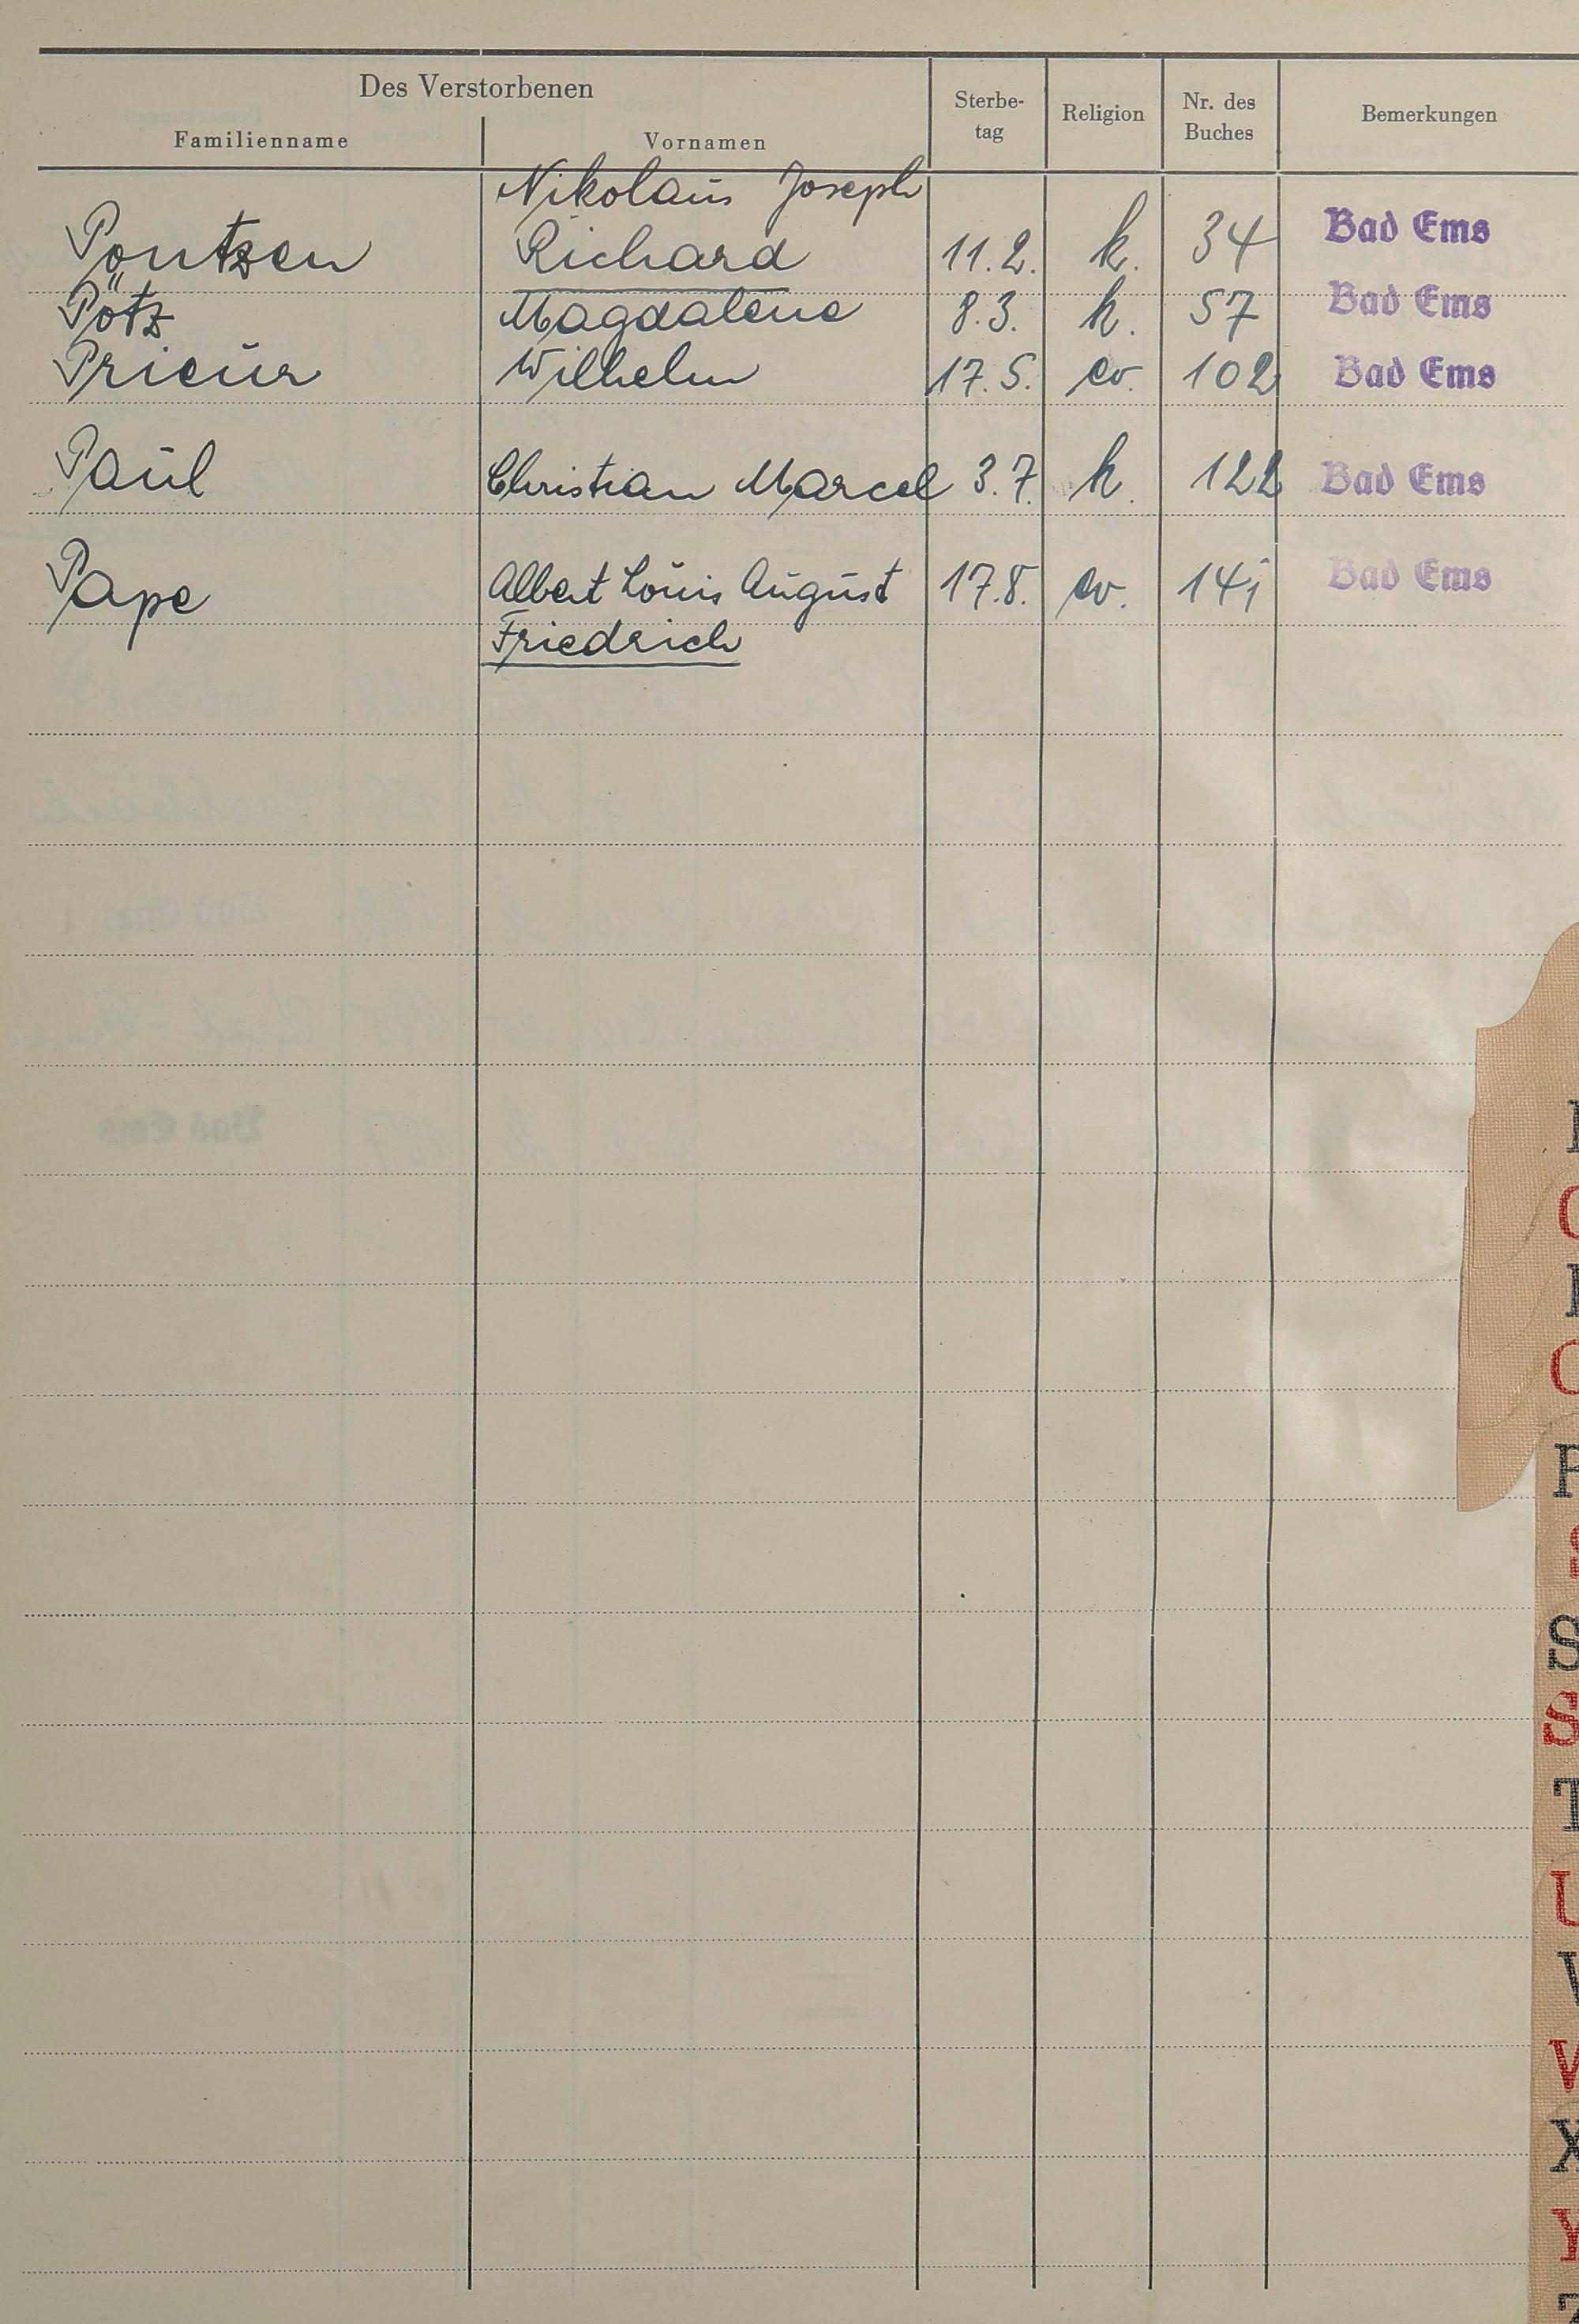 Des Verstorbenen
Familienname Vornamen Sterbe-tag Religion Nr. des Buches Bemerkungen
Nikolaus Joseph
Pontzen Richard 11.2. k. 34 Bad Ems
Pötz Magdalene 8.3. k. 57 Bad Ems
Prieur Wilhelm 17.5. ev. 102 Bad Ems
Paul Christian Marcel 3.7. k. 122 Bad Ems
Pape Albert Louis August 17.8. ev. 141 Bad Ems
Friedrich
S
S
T
U
V
X
Y